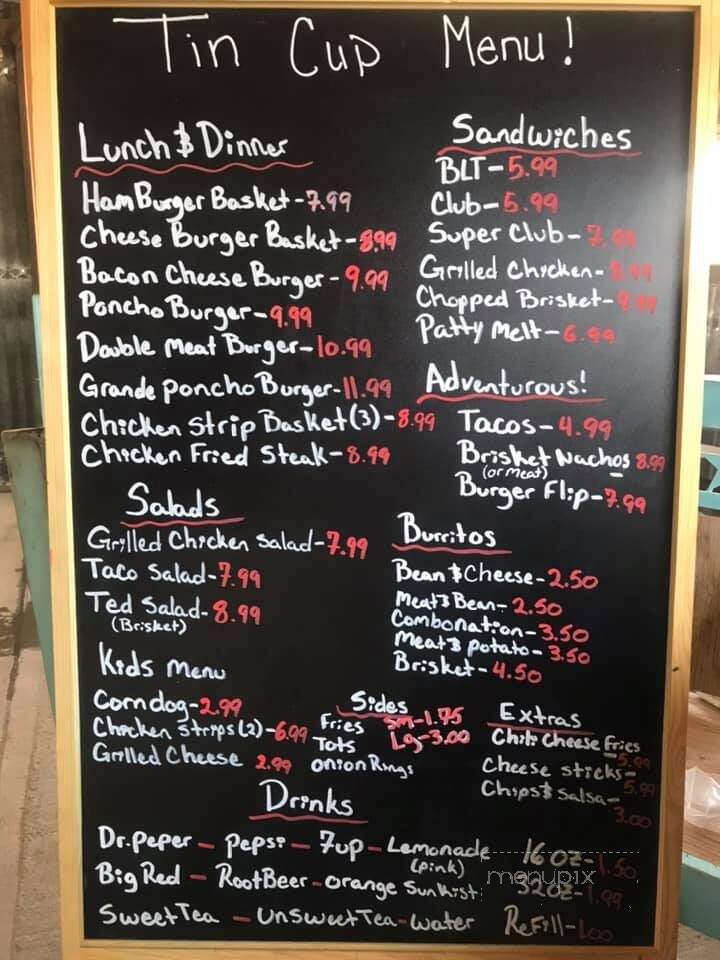 Tin Cup Menu!
Lunch & Dinner
HamBurger Basket-7.99
Cheese Burger Basket-8.99
Bacon Cheese Burger-9.99
Poncho Burger-9.99
Double Meat Burger-10.99
Grande Poncho Burger-11.99
Chicken Strip Basket(3)-8.99
Chicken Fried Steak-8.99
Salads
Grilled Chicken Salad-7.99
Taco Salad-7.99
Ted Salad-8.99
(Brisket)
Kids Menu
Corndog-2.99
Chicken Strips(2)-6.99
Grilled Cheese 2.99
Sandwiches
BLT-5.99
Club-5.99
Super Club-
Grilled Chicken-
Chopped Brisket-
Patty Melt-6.99
Adventurous!
Tacos-4.99
Brisket Nachos 8.99
(or meat)
Burger Flip-7.99
Burritos
Bean & Cheese-2.50
Meat & Bean-2.50
Combonation-3.50
Meat & Potato-3.50
Brisket-4.50
Sides
Fries Sm-1.75
Tots Lg-3.00
Onion Rings
Extras
Chili Cheese Fries
5.99
Cheese sticks-
5.99
Chips & Salsa-
3.00
Drinks
Dr.peper - pepsi - 7up - Lemonade
(pink)
Big Red - RootBeer - orange Sunkist
Sweet Tea - Unsweet Tea - water
16oz-1.50
32oz-1.99
Refill-1.00
menupix